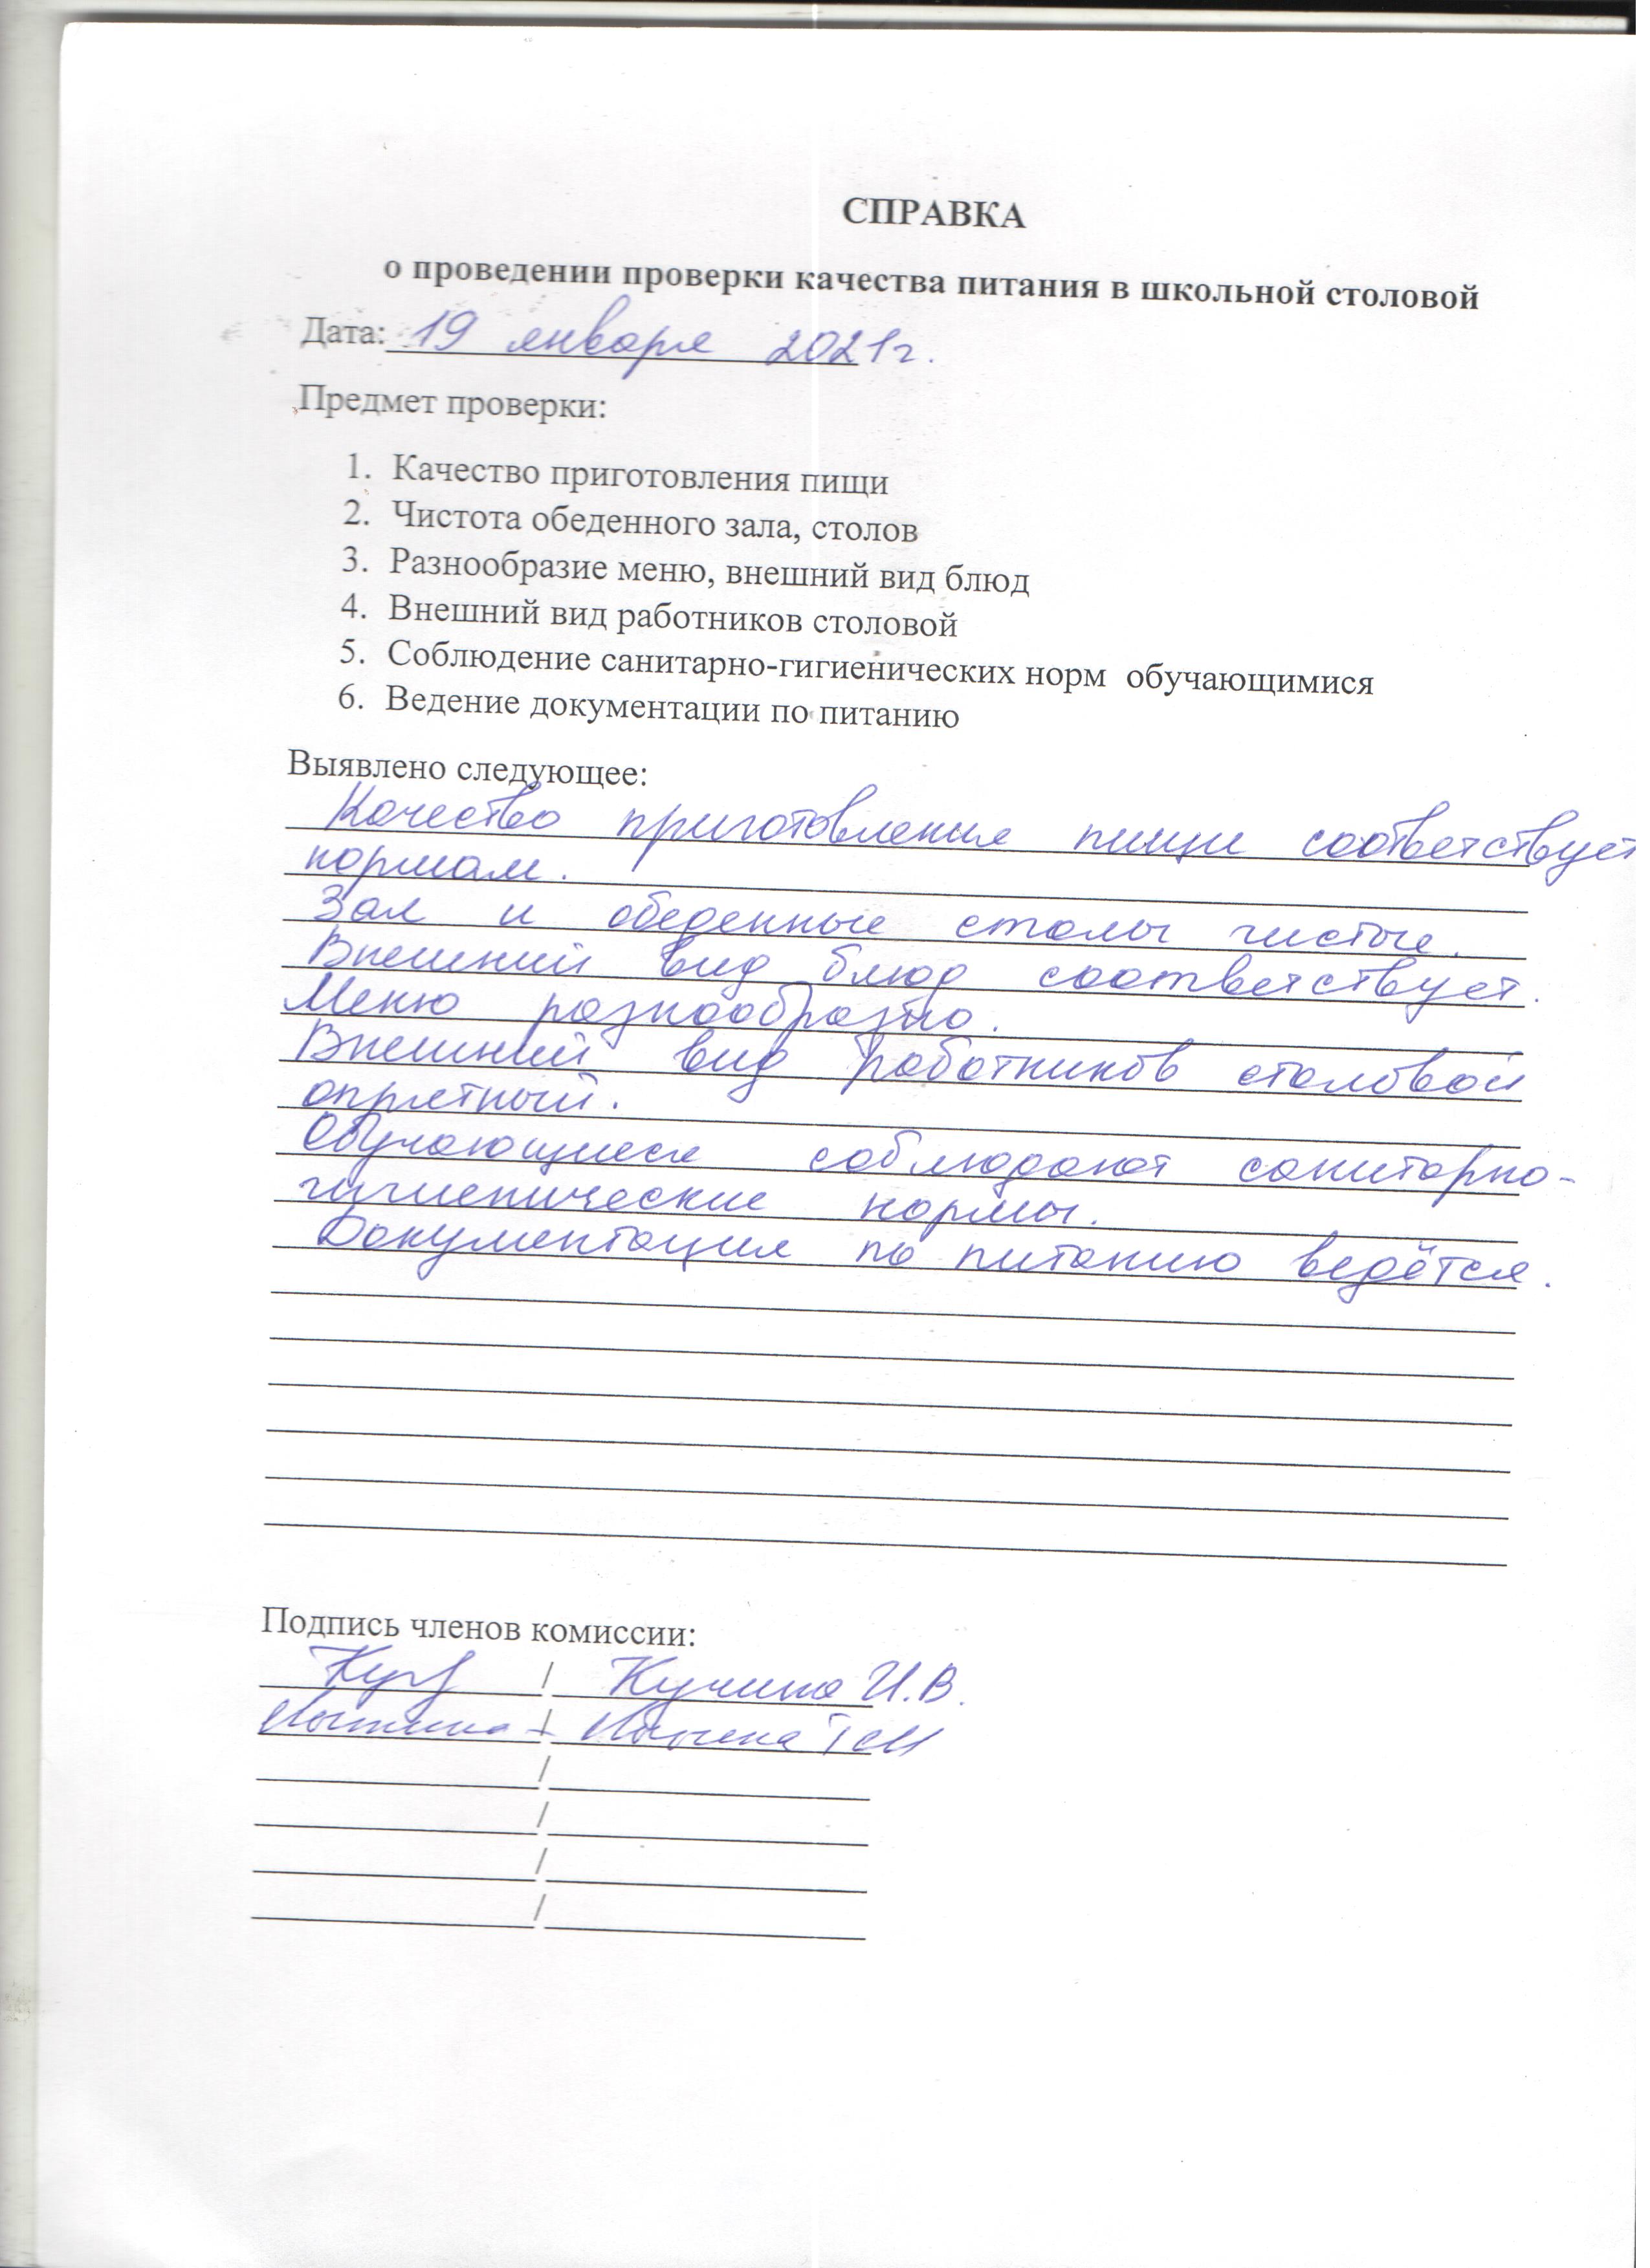 СПРАВКА
о проведении проверки качества питания в школьной столовой
Дата: 19 января 2021г.
Предмет проверки:
1. Качество приготовления пищи
2. Чистота обеденного зала, столов
3. Разнообразие меню, внешний вид блюд
4. Внешний вид работников столовой
5. Соблюдение санитарно-гигиенических норм обучающимися
6. Ведение документации по питанию
Выявлено следующее:
Качество приготовления пищи соответствует
нормам.
Зал и обеденные столы чистые.
Внешний вид блюд соответствует.
Меню разнообразно.
Внешний вид работников столовой
опрятный.
Обучающиеся соблюдают санитарно-
гигиенические нормы.
Документация по питанию ведётся.
Подпись членов комиссии:
/ Кучина И.В.
/
/
/
/
/